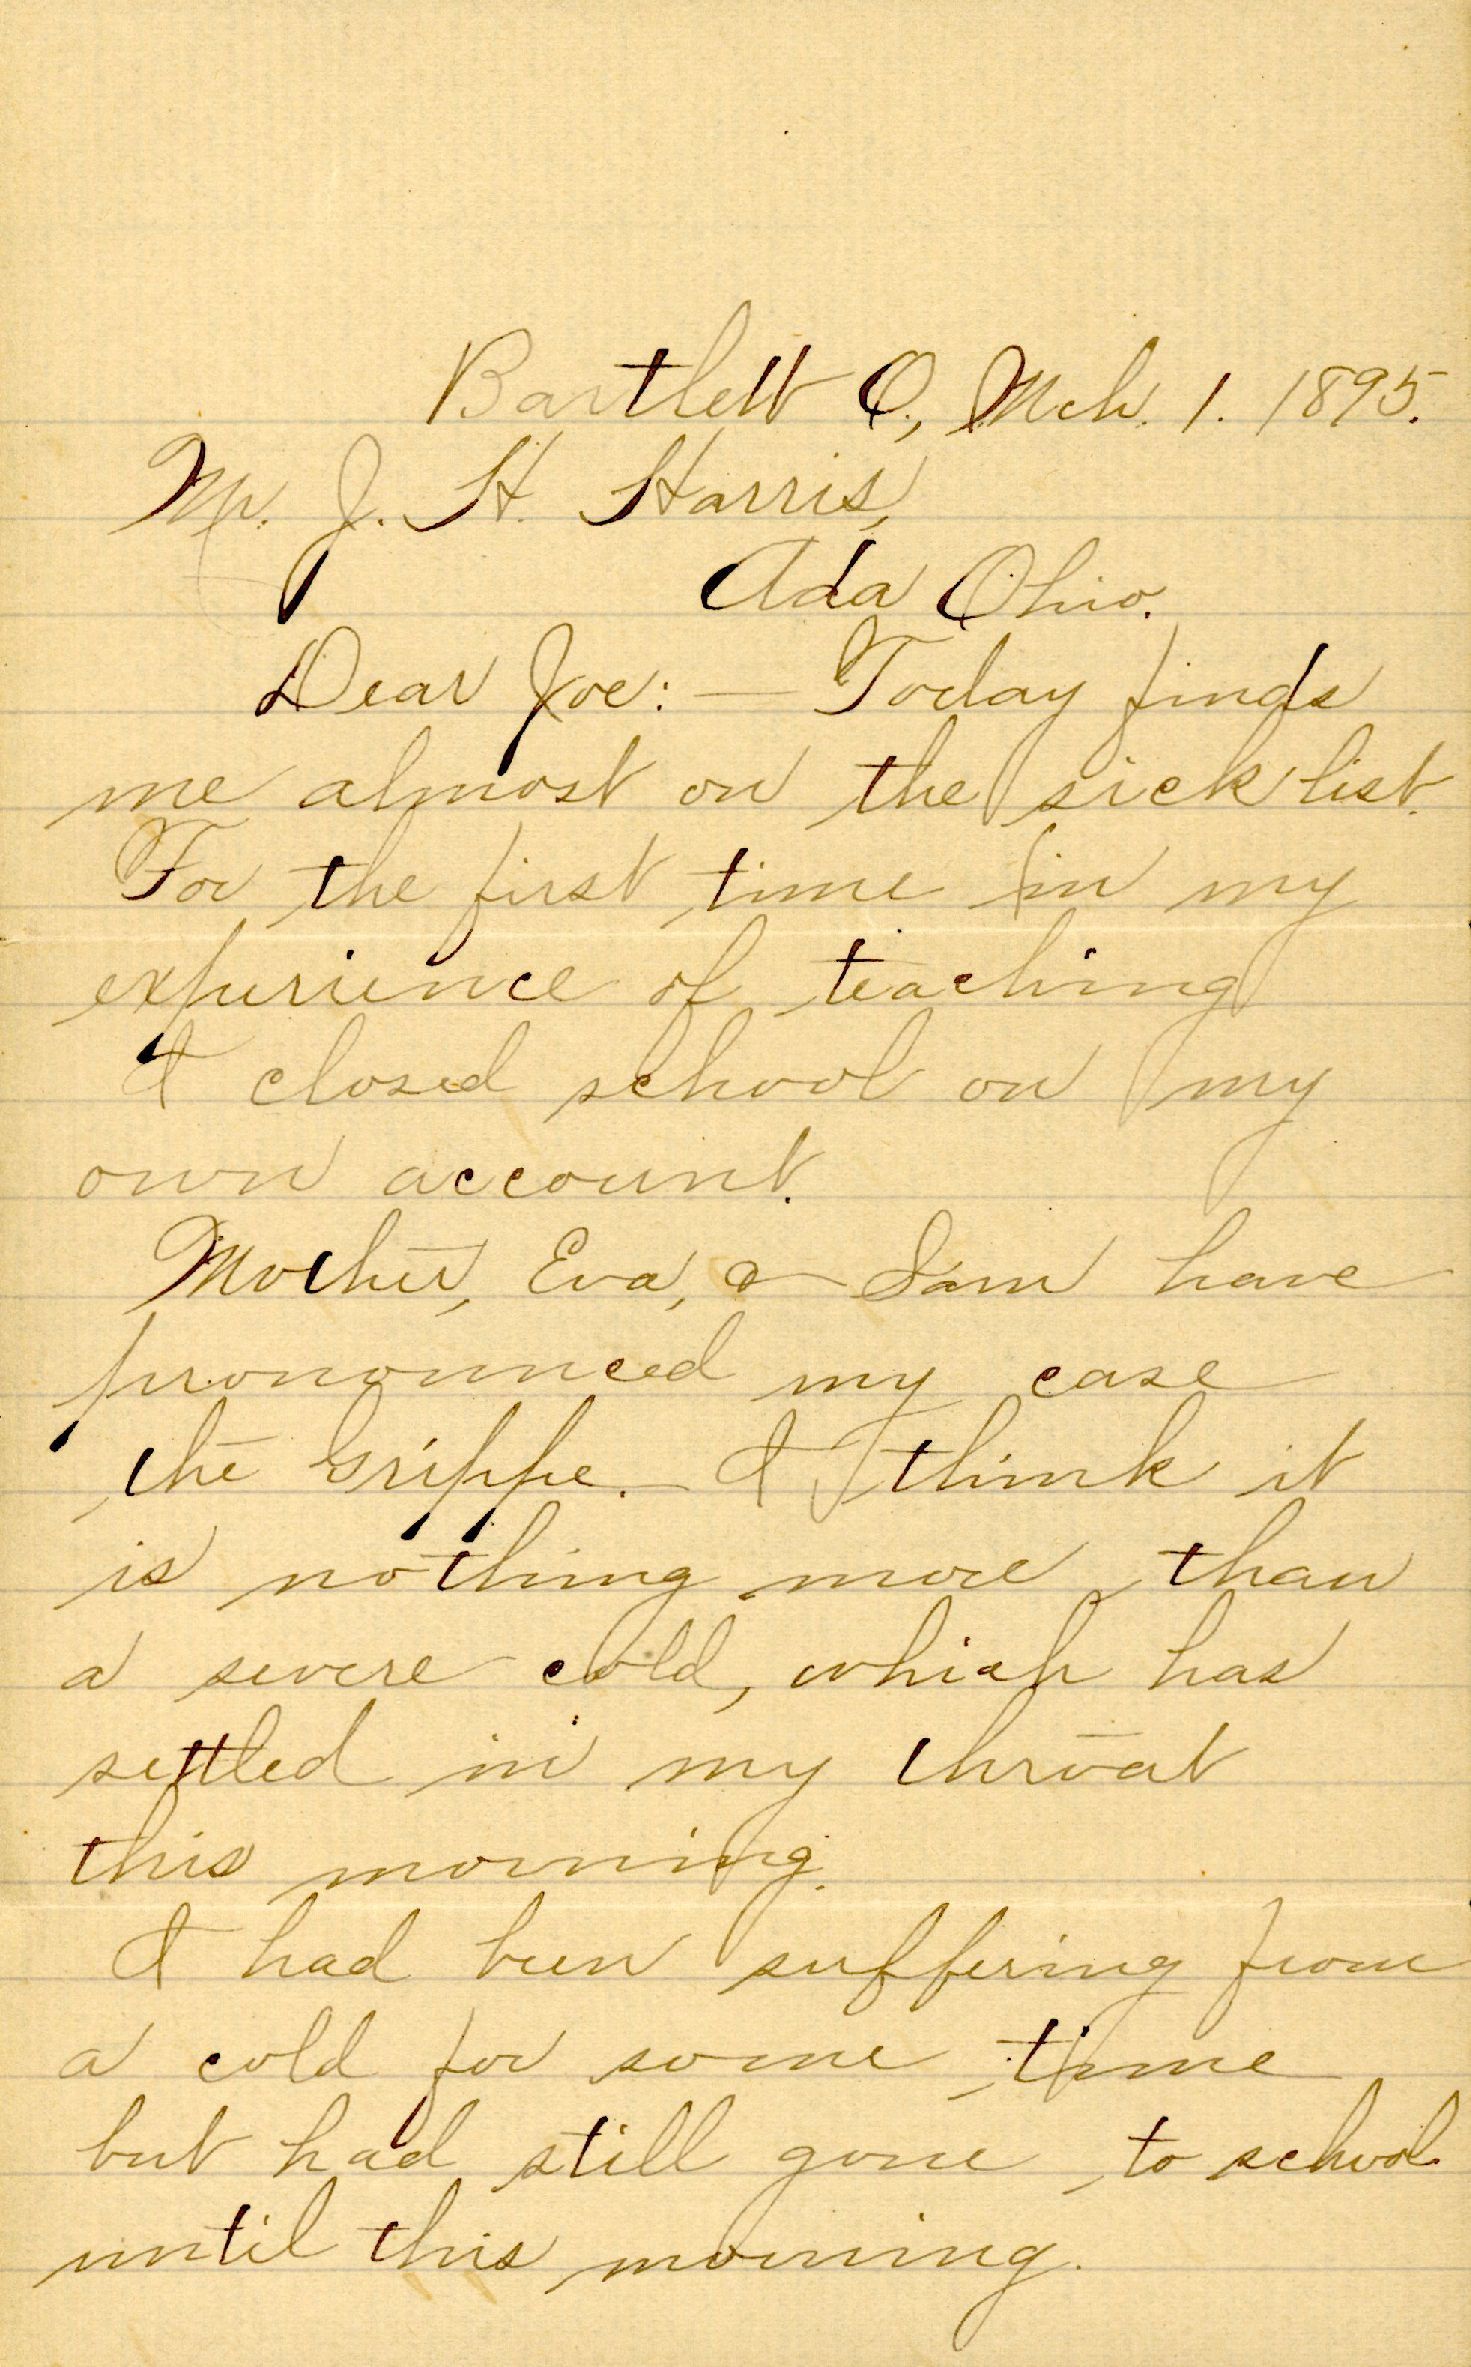 Bartlett O., Mch. 1. 1895.
Mr. J. H. Harris,
Ada Ohio.
Dear Joe: — Today finds
me almost on the sick list.
For the first time in my
experience of teaching
I closed school on my
own account.
Mother, Eva, & Sam have
pronounced my case
the Grippe. I think it
is nothing more than
a severe cold, which has
settled in my throat
this morning.
I had been suffering from
a cold for some time
but had still gone to school
until this morning.